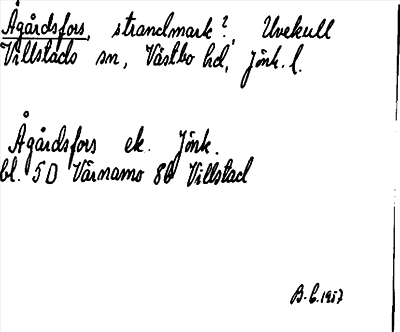 Ågårdsfors, strandmark?, Uvekull
Villstads sn, Västbo hd, Jönk. l.
Ågårdsfors ek. Jönk.
bl. 5D Värnamo 8b Villstad
B-b.1957